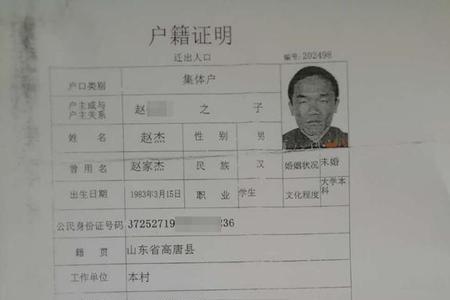 户籍证明
迁出人口
编号:202498
户口类别 集体户
户主或与户主关系 赵 之 子
姓名 赵杰 性别 男
曾用名 赵家杰 民族 汉 婚姻状况 未婚
出生日期 1983年3月15日 职业 学生 文化程度 大学本科
公民身份证号码 37252719 236
籍贯 山东省高唐县
工作单位 本村